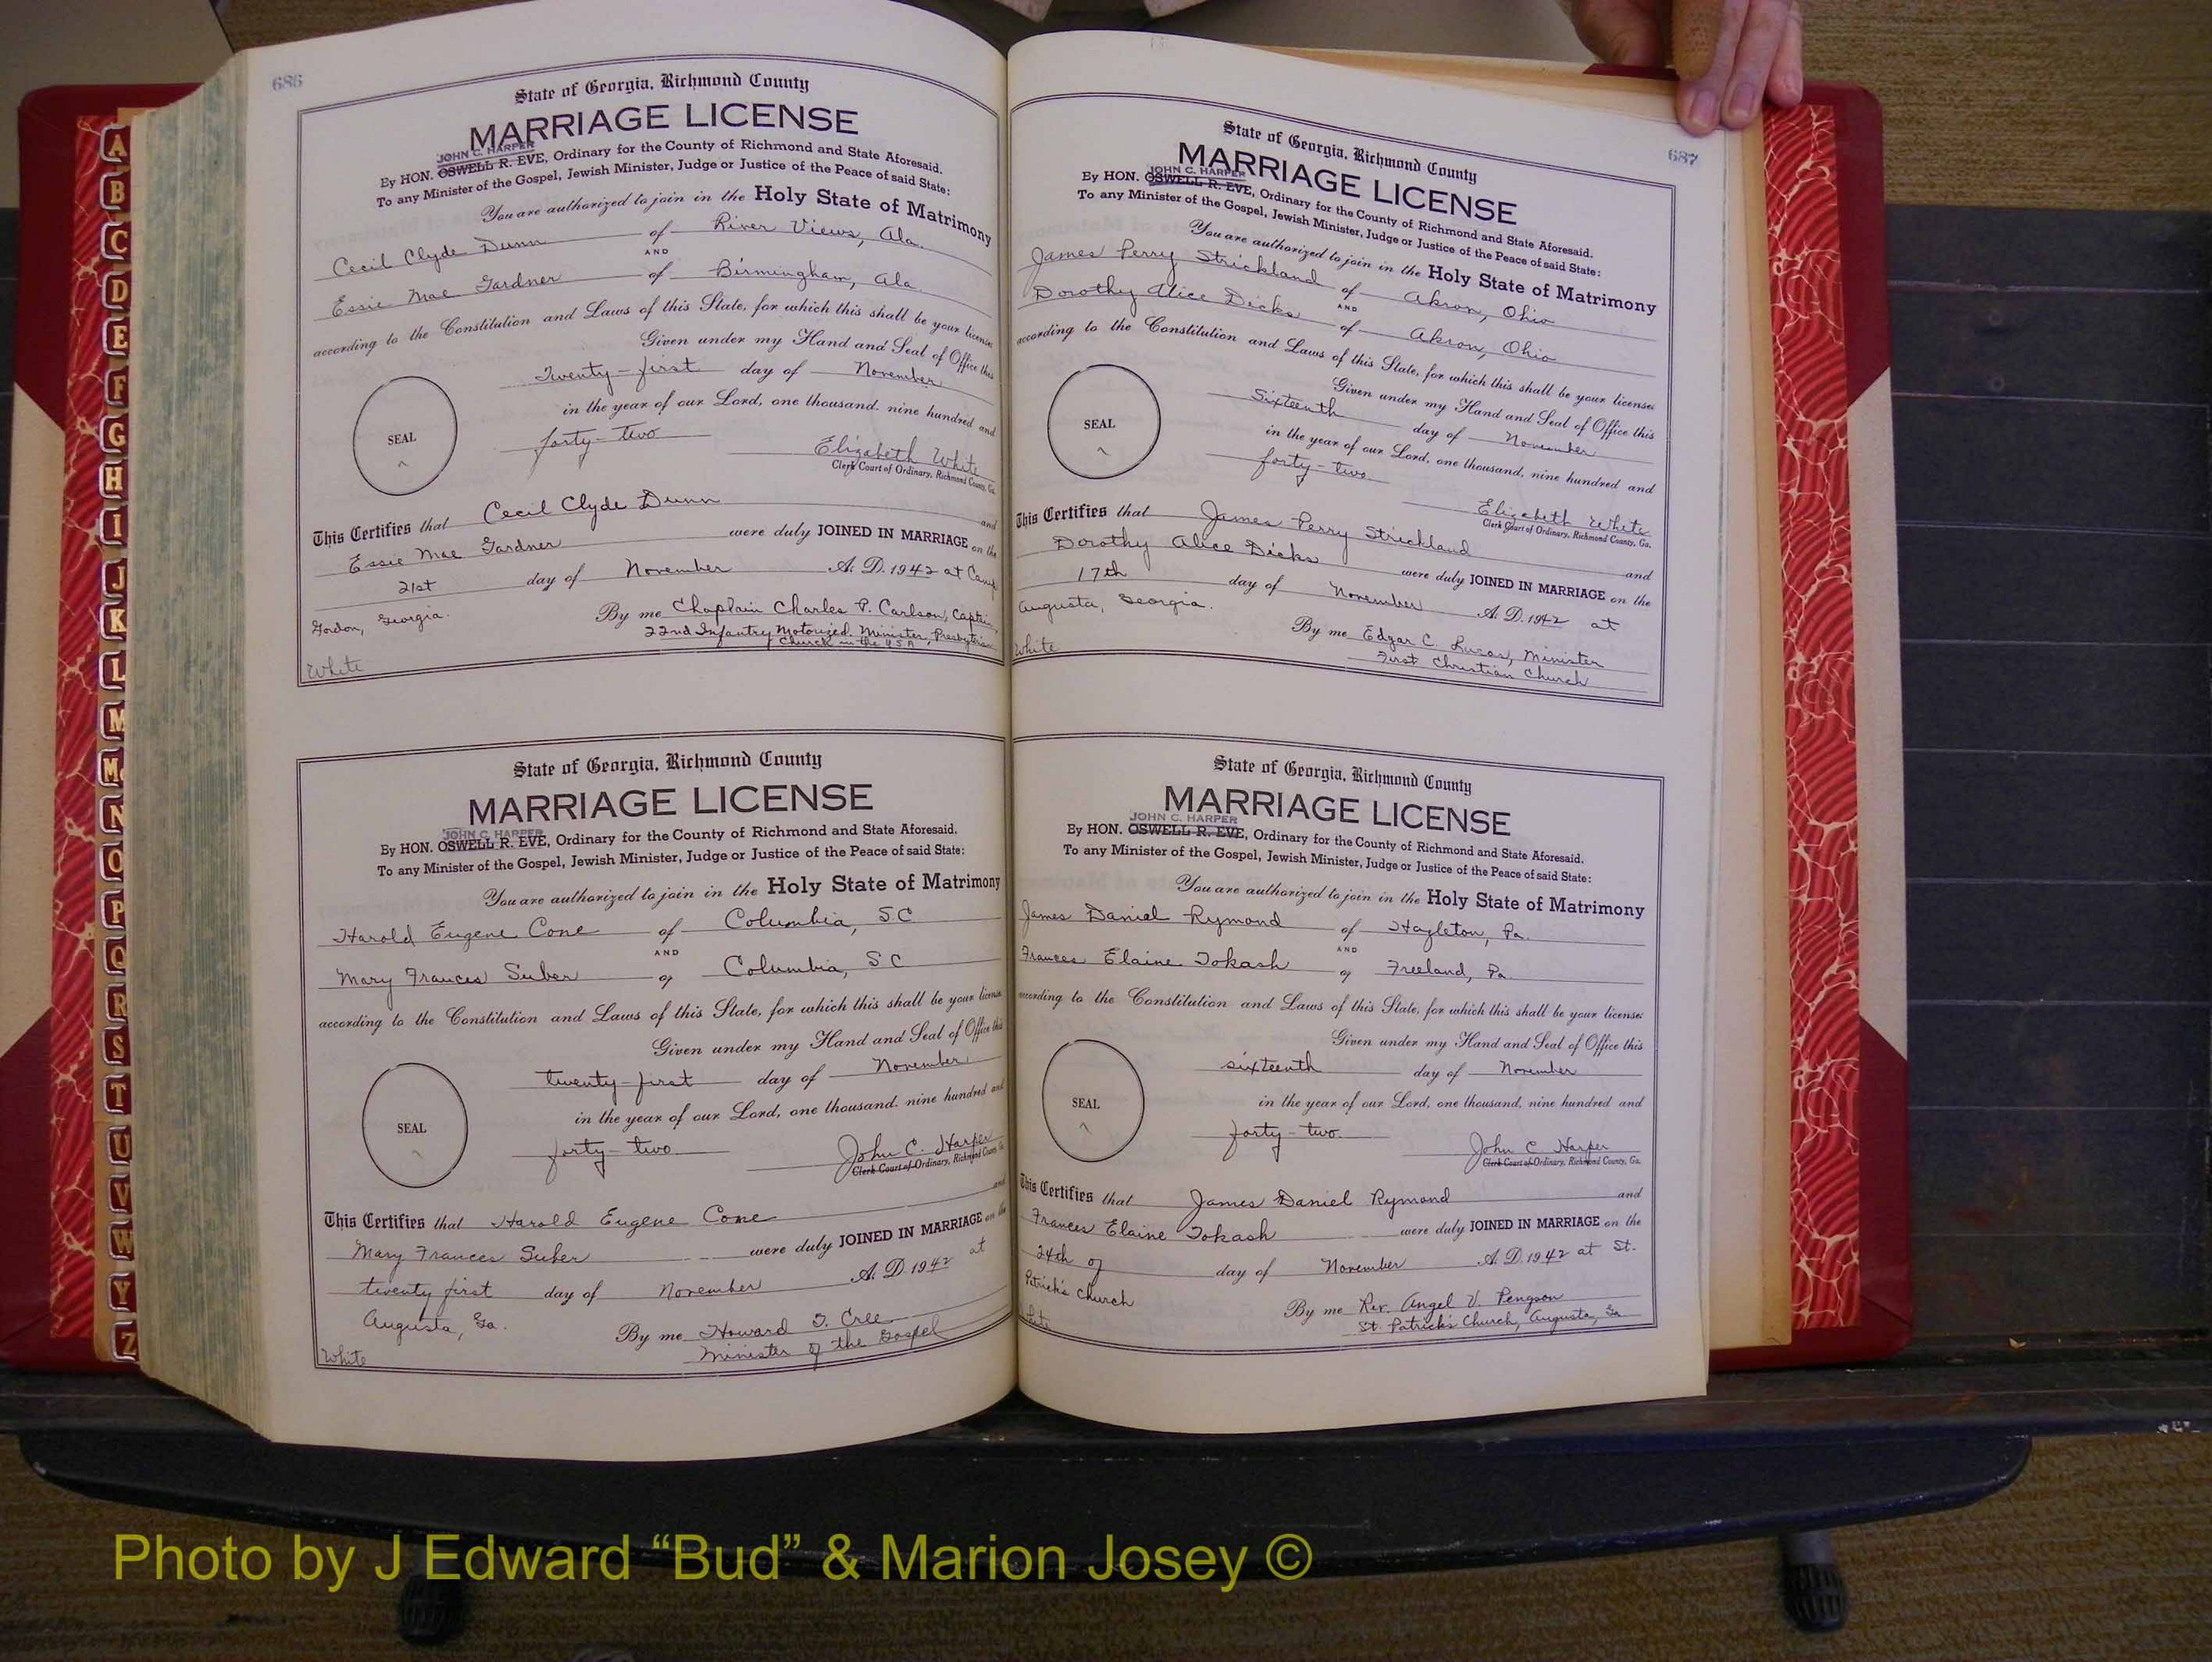 686
State of Georgia, Richmond County
MARRIAGE LICENSE
JOHN C. HARPER
By HON. OSWELL R. EVE, Ordinary for the County of Richmond and State Aforesaid.
To any Minister of the Gospel, Jewish Minister, Judge or Justice of the Peace of said State:
You are authorized to join in the Holy State of Matrimony
Cecil Clyde Dunn of River Views, Ala.
AND
Essie Mae Gardner of Birmingham, Ala.
according to the Constitution and Laws of this State, for which this shall be your license
Given under my Hand and Seal of Office this
Twenty-first day of November
in the year of our Lord, one thousand. nine hundred and
forty-two
SEAL
Elizabeth White
Clerk Court of Ordinary, Richmond County, Ga.
This Certifies that Cecil Clyde Dunn and
Essie Mae Gardner were duly JOINED IN MARRIAGE on the
21st day of November A. D. 1942 at Camp
Gordon, Georgia. By me Chaplain Charles P. Carlson, Captain,
22nd Infantry Motorized. Minister, Presbyterian
Church in the USA
White
State of Georgia, Richmond County
MARRIAGE LICENSE
JOHN C. HARPER
By HON. OSWELL R. EVE, Ordinary for the County of Richmond and State Aforesaid.
To any Minister of the Gospel, Jewish Minister, Judge or Justice of the Peace of said State:
You are authorized to join in the Holy State of Matrimony
Harold Eugene Cone of Columbia, S.C
AND
Mary Frances Suber of Columbia, S C
according to the Constitution and Laws of this State, for which this shall be your license
Given under my Hand and Seal of Office this
twenty-first day of November
in the year of our Lord, one thousand. nine hundred and
forty-two
SEAL
John C. Harper
Clerk Court of Ordinary, Richmond County Ga.
This Certifies that Harold Eugene Cone and
Mary Frances Suber were duly JOINED IN MARRIAGE on the
twenty first day of November A. D. 1942 at
Augusta, Ga. By me Howard T. Cree
Minister of the Gospel
White
687
State of Georgia, Richmond County
MARRIAGE LICENSE
JOHN C. HARPER
By HON. OSWELL R. EVE, Ordinary for the County of Richmond and State Aforesaid.
To any Minister of the Gospel, Jewish Minister, Judge or Justice of the Peace of said State:
You are authorized to join in the Holy State of Matrimony
James Perry Strickland of Akron, Ohio
AND
Dorothy Alice Dicks of Akron, Ohio
according to the Constitution and Laws of this State, for which this shall be your license:
Given under my Hand and Seal of Office this
Sixteenth day of November
in the year of our Lord, one thousand, nine hundred and
forty-two
SEAL
Elizabeth White
Clerk Court of Ordinary, Richmond County, Ga.
This Certifies that James Perry Strickland and
Dorothy Alice Dicks were duly JOINED IN MARRIAGE on the
17th day of November A. D. 1942 at
Augusta, Georgia. By me Edgar C. Lucas, Minister
First Christian Church
White
State of Georgia, Richmond County
MARRIAGE LICENSE
JOHN C. HARPER
By HON. OSWELL R. EVE, Ordinary for the County of Richmond and State Aforesaid.
To any Minister of the Gospel, Jewish Minister, Judge or Justice of the Peace of said State:
You are authorized to join in the Holy State of Matrimony
James Daniel Rymond of Hazleton, Pa.
AND
Frances Elaine Tokash of Freeland, Pa
according to the Constitution and Laws of this State, for which this shall be your license:
Given under my Hand and Seal of Office this
sixteenth day of November
in the year of our Lord, one thousand, nine hundred and
forty-two.
SEAL
John C Harper
Clerk Court of Ordinary, Richmond County, Ga.
This Certifies that James Daniel Rymond and
Frances Elaine Tokash were duly JOINED IN MARRIAGE on the
24th of day of November A. D. 1942 at St.
Patrick's Church By me Rev. Angel V. Pengson
St. Patrick's Church, Augusta, Ga
White
A
B
C
D
E
F
G
H
I
J
K
L
M
Mc
N
O
P
Q
R
S
T
U
V
W
Y
Z
Photo by J Edward “Bud” & Marion Josey ©